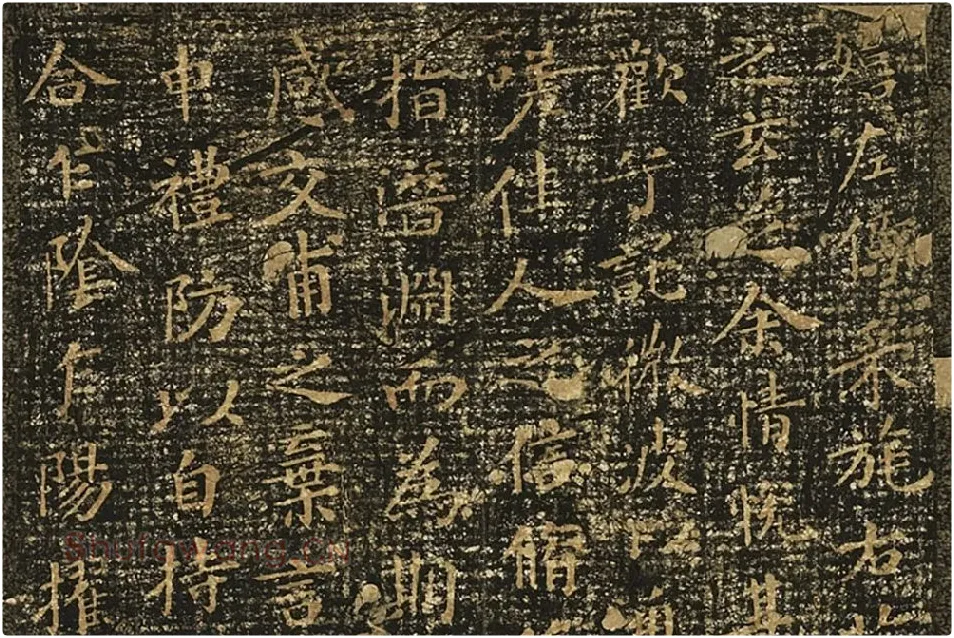 嬉左倚采旄右
之玄芝余情悅其
歡兮託微波以
嗟佳人之信脩
指潛淵而為期
感交甫之棄言
申禮防以自持
合乍陰乍陽擢
Shufawang.cn